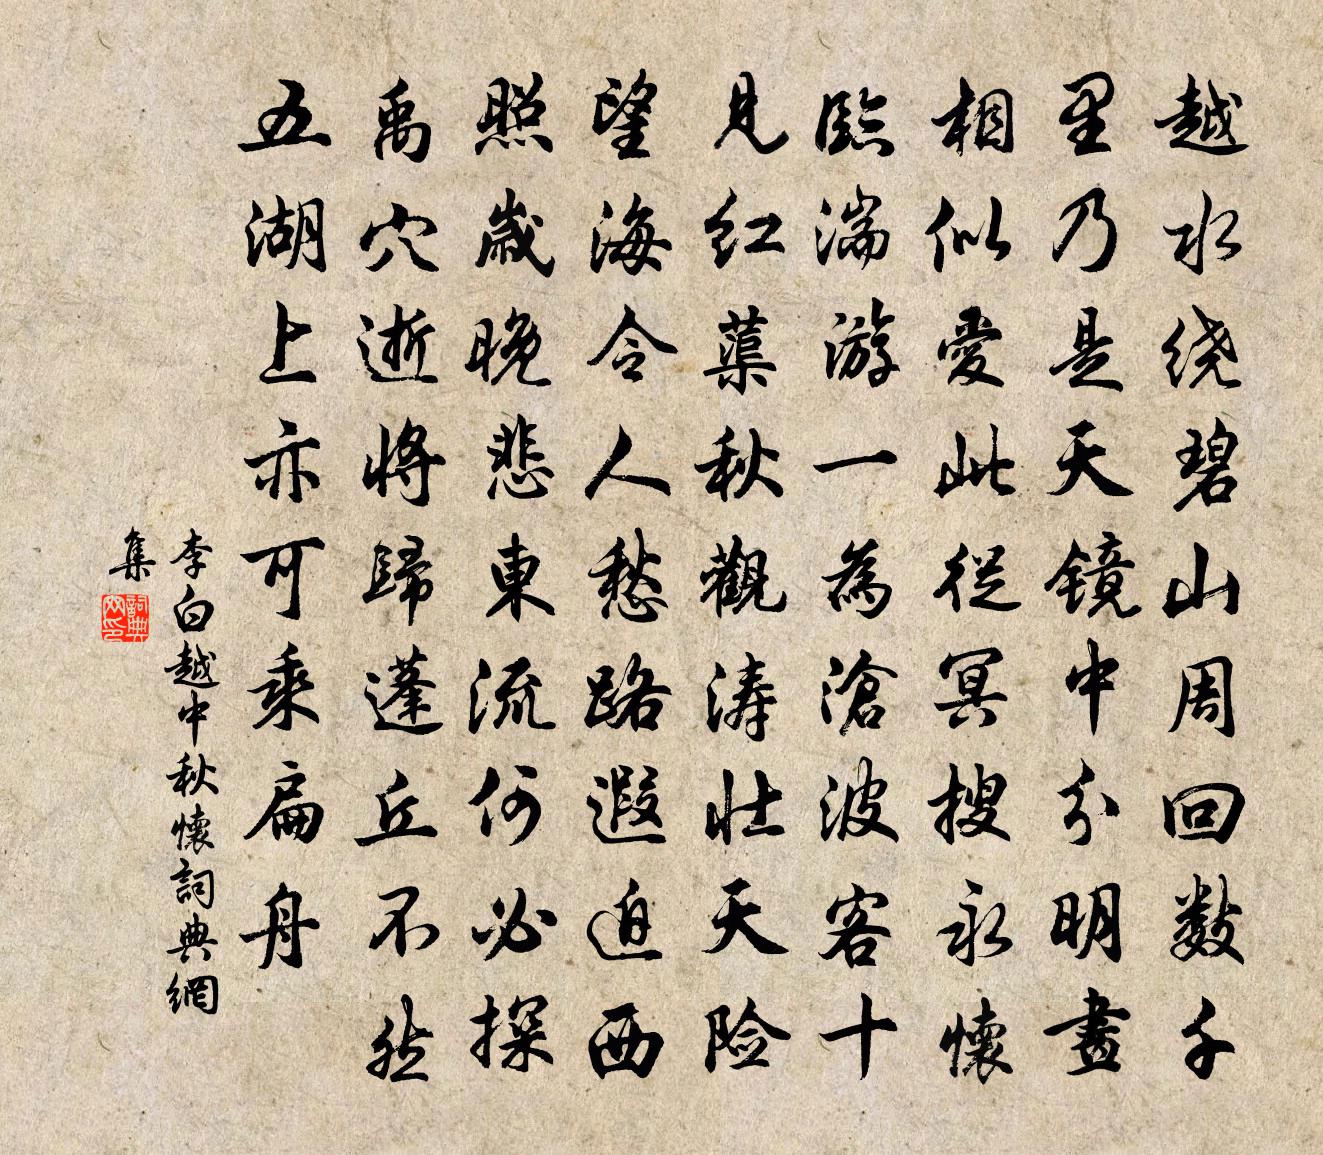 越水绕碧山周回数千
里乃是天镜中分明畫
相似愛此從冥搜永懷
臨湍游一為滄波客十
見红蕖秋觀涛壮天险
望海令人愁路遐迫西
照歲晚悲東流何必探
禹穴逝将歸蓬丘不然
五湖上亦可乘扁舟
李白越中秋懷詞典網
集
詞典
网印